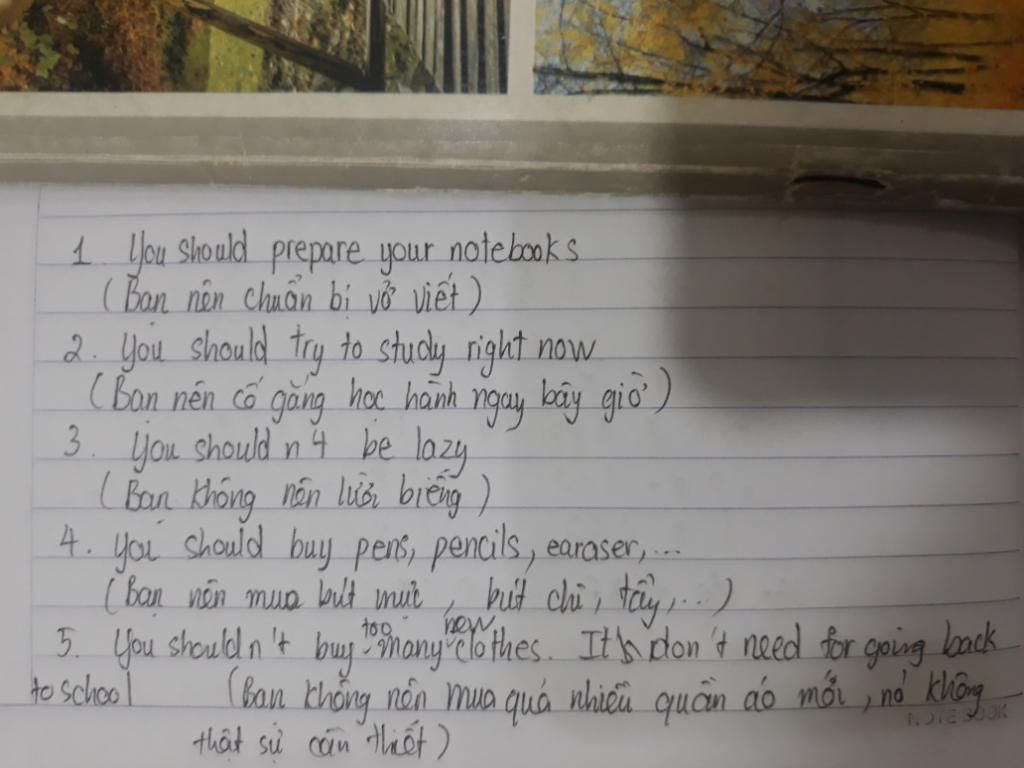 1 You should prepare your notebooks
(Bạn nên chuẩn bị vở viết)
2. You should try to study right now
(Bạn nên cố gắng học hành ngay bây giờ)
3. You should n't be lazy
(Bạn không nên lười biếng)
4. You should buy pens, pencils, earaser,...
(Bạn nên mua bút mực, bút chì, tẩy,...)
5. You shouldn't buy too many new clothes. It's don't need for going back
to school (Bạn không nên mua quá nhiều quần áo mới, nó không
thật sự cần thiết)
NOTE BOOK